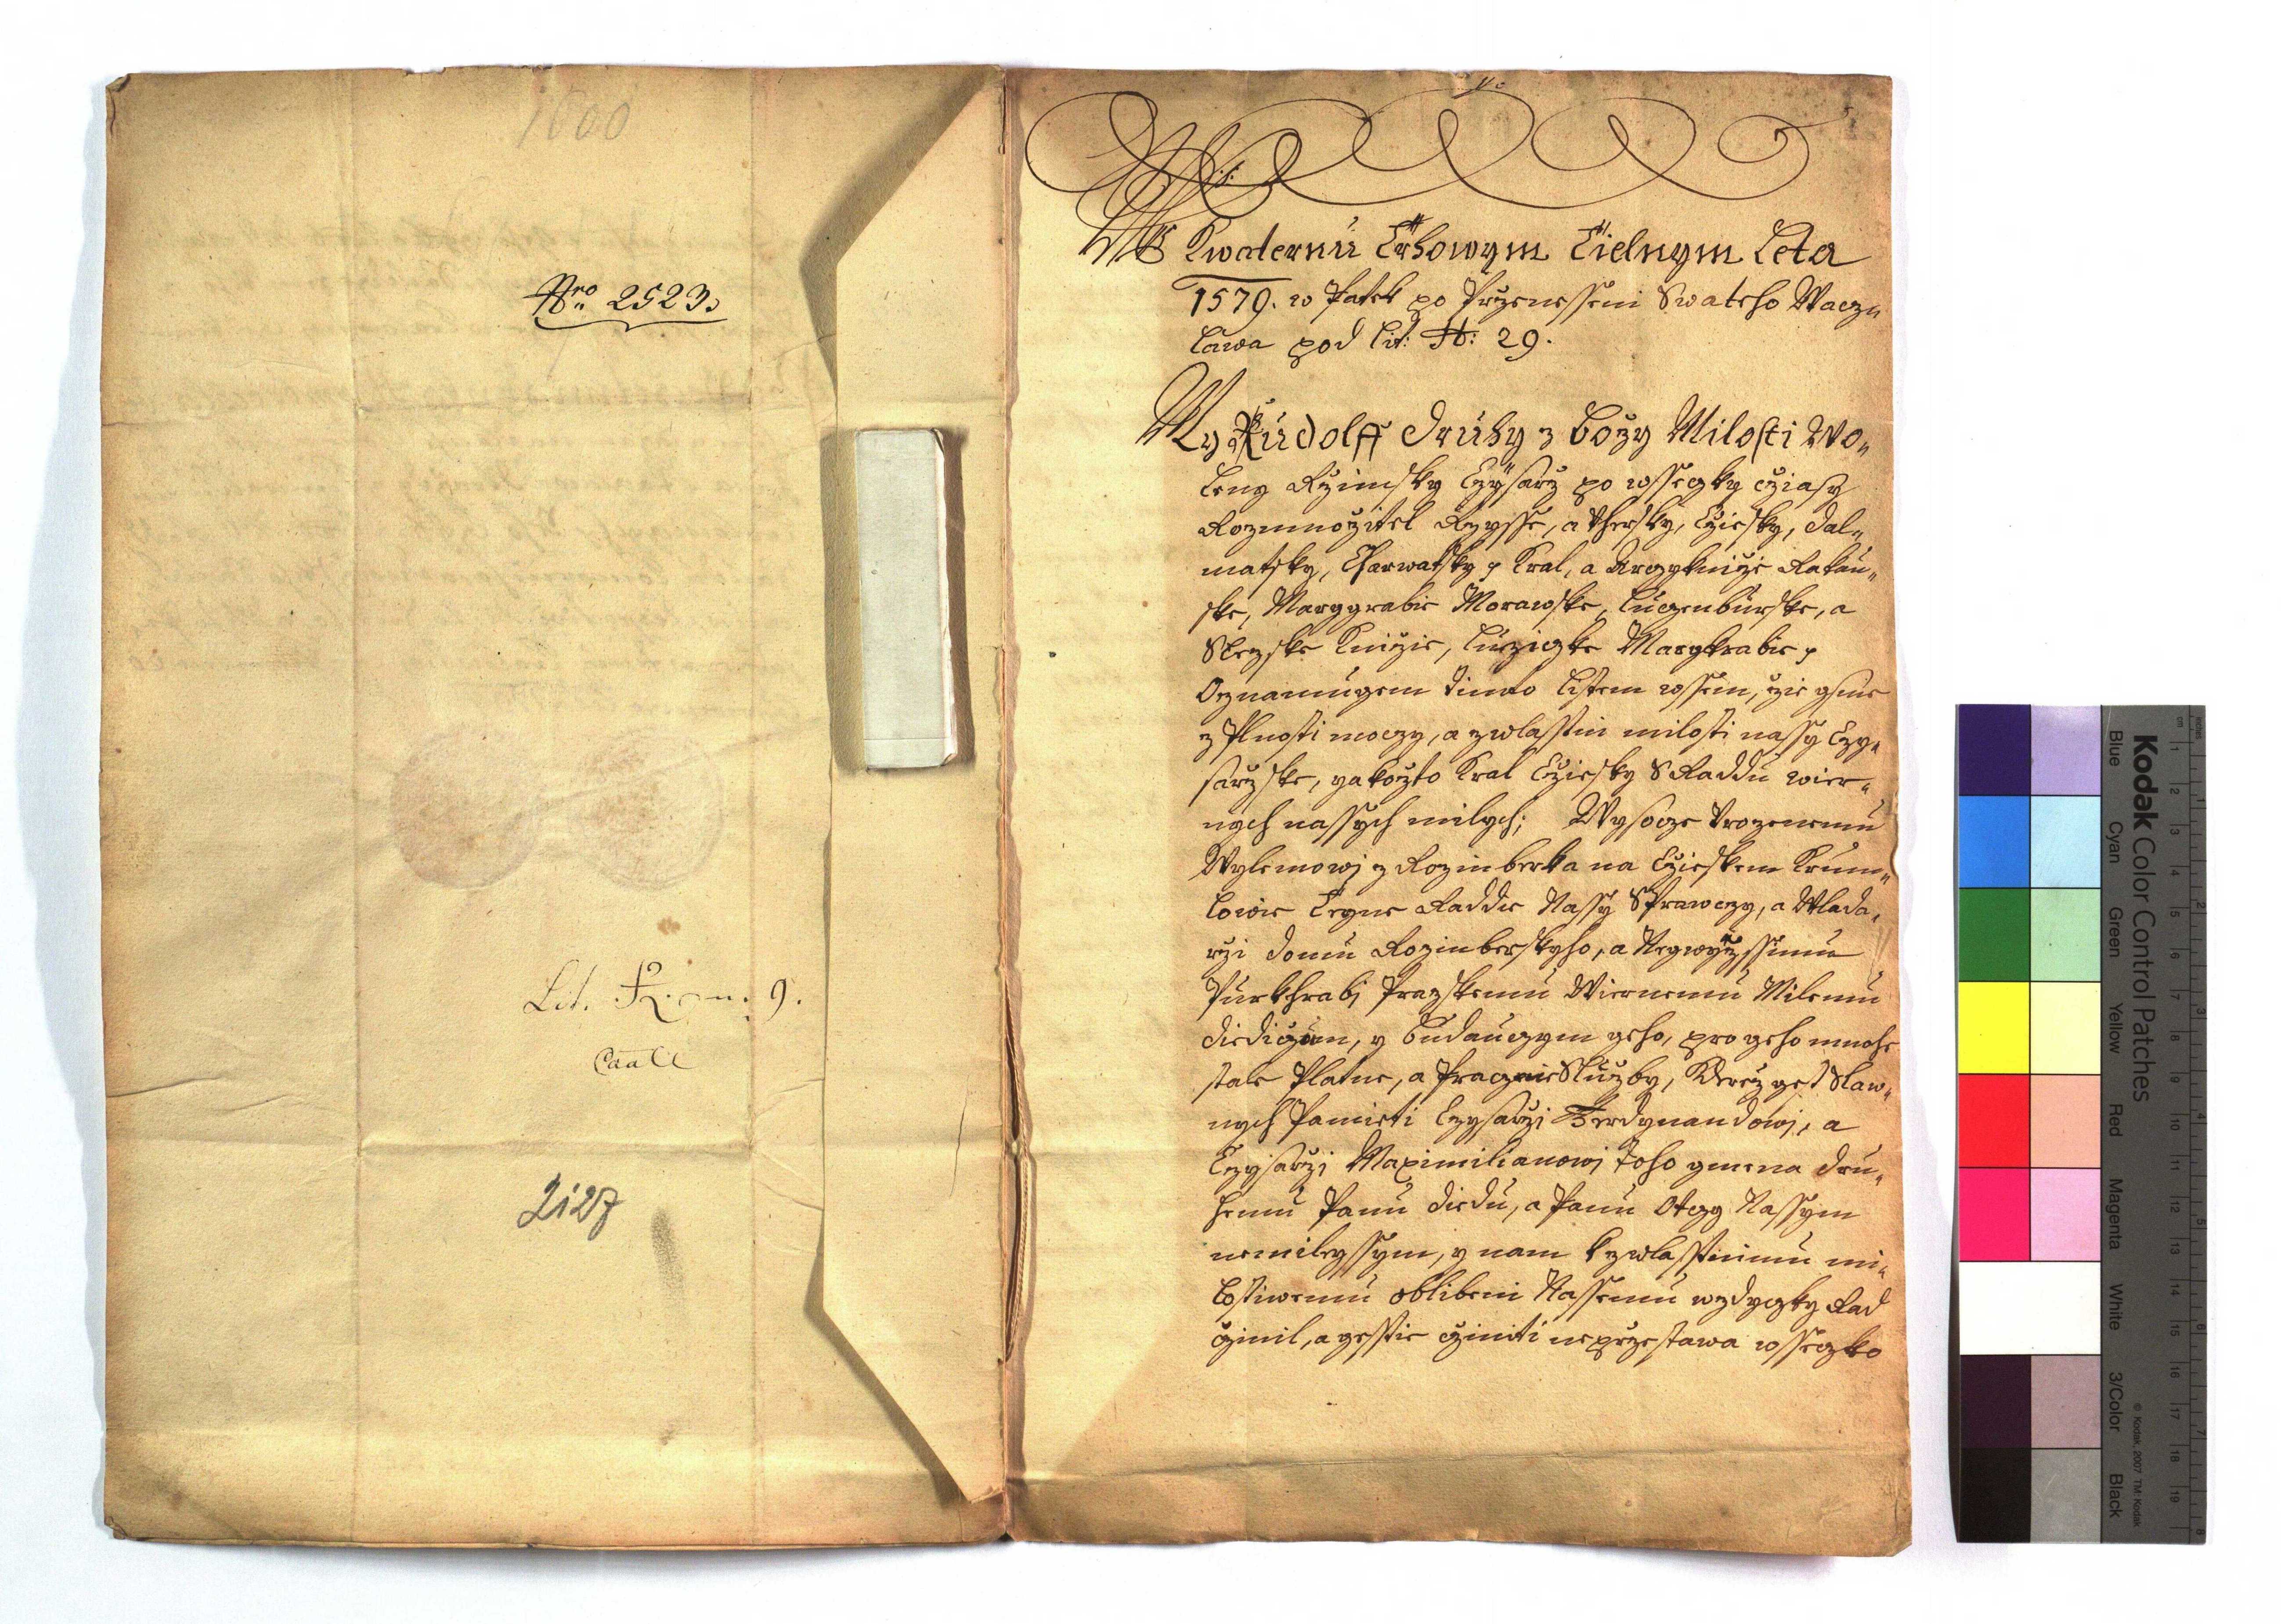 1600
Nro 2523.
Lit. R. n. 9.
2127
W Kwaternu Trhowym Zielnym Leta
1579. w Patek po Przenesseni Swateho Wacz„
lawa pod Lit: H: 29.
My Rudolff Druhy z Boży Milosti Wo„
leny Rżimsky Czÿsarż po wsseczky cżiasy
Rozmnożitel Rzysse, a Vhersky, Cżiesky, Dal„
matsky, Charwatsky Kral, a Arczykniże Rakau„
ske, Marggrabie Morawske, Luczenburske, a
Slezske Kniżie, Lużiczke Margkrabie
Oznamugem timto Listem wssem, żie gsme
z Plnosti moczy, a zwlasstni milosti nassy Czy„
sarżske, yakożto Kral Cżiesky S Raddu wier„
nych nassych milych; Wysocze Vrozenemu
Wylemowj z Rozmberka na Cżieskem Krum„
lowie Tegne Raddie Nassy Sprawczy, a Wlada„
rżi domu Rozmberskyho, a Neywyżssimu
Purkhrabj Prażskemu Wiernemu Milemu
diediczum, y budauczym geho, pro geho mnohe
stale Platne, a Pracznie Służby, Kterez get Slaw„
nych Pamieti Czysarżi Ferdynandowj, a
Czysarżi Maximilianowj toho gmena dru„
hemu Panu diedu, a Panu Otczy Nassym
nemileyssym, y nam k zwlasstnimu mi„
lostiwemu oblibeni Nassemu wzdyczky Rad
cżinil, a gesstie cżiniti neprżestawa wsseczko